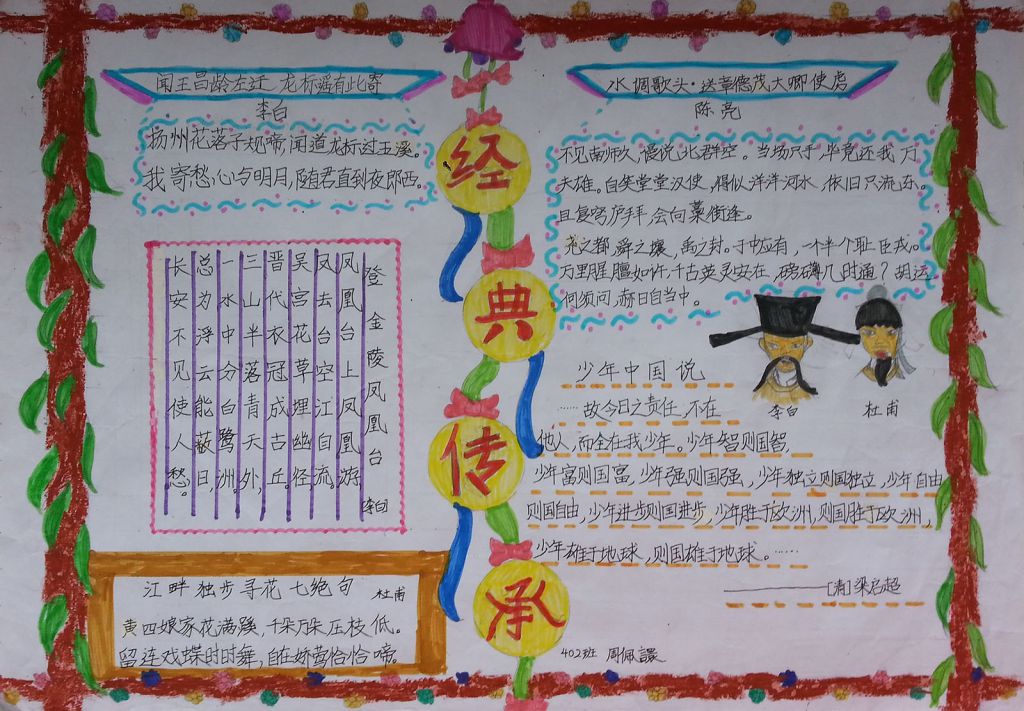 闻王昌龄左迁 龙标遥有此寄
李白
扬州花落子规啼,闻道龙标过五溪。
我寄愁心与明月,随君直到夜郎西。
登金陵凤凰台
李白
凤凰台上凤凰游
凤去台空江自流。
吴宫花草埋幽径
晋代衣冠成古丘。
三山半落青天外,
一水中分白鹭洲。
总为浮云能蔽日,
长安不见使人愁。
江畔独步寻花 七绝句 杜甫
黄四娘家花满蹊,千朵万朵压枝低。
留连戏蝶时时舞,自在娇莺恰恰啼。
经
典
传
承
水调歌头·送章德茂大卿使虏
陈亮
不见南师久,谩说北群空。当场只手,毕竟还我万
夫雄。自笑堂堂汉使,得似洋洋河水,依旧只流东。
且复穹庐拜,会向藁街逢。
尧之都,舜之壤,禹之封。于中应有,一个半个耻臣戎。
万里腥膻如许,千古英灵安在,磅礴几时通?胡运
何须问,赫日自当中。
李白
杜甫
少年中国说
……故今日之责任,不在
他人,而全在我少年。少年智则国智,
少年富则国富,少年强则国强,少年独立则国独立,少年自由
则国自由,少年进步则国进步,少年胜于欧洲,则国胜于欧洲,
少年雄于地球,则国雄于地球。……
———[清]梁启超
402班 周佩